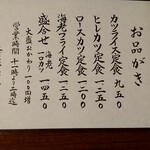 お品がき
カツライス定食 九五〇
ヒレカツ定食 一二五〇
ロースカツ定食 一二五〇
海老フライ定食 一三五〇
盛合せ 海老 一口カツ 一四五〇
大盛おかわり 一〇〇円増
営業時間 十一時より二時迄